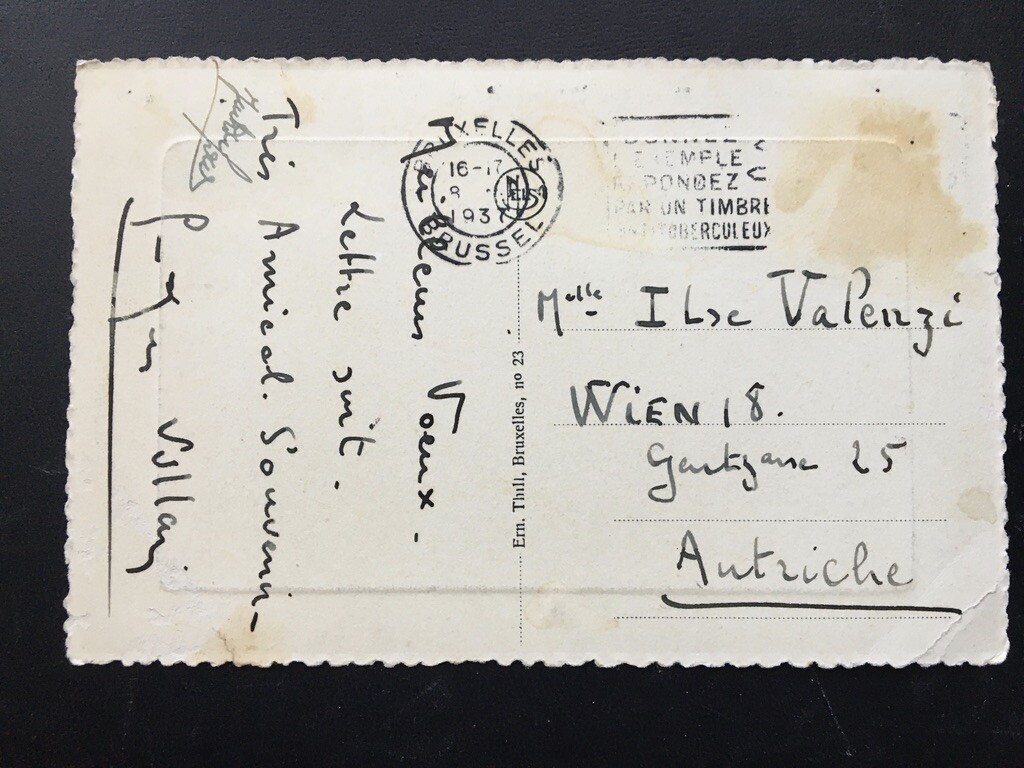 Meilleurs Voeux.
Lettre suit.
Très Amical. Souvenir
BRUXELLES
16-17
8
1937
BRUSSEL
NELS
DONNEZ
L'EXEMPLE
REPONDEZ
PAR UN TIMBRE
ANTITUBERCULEUX
Ern. Thill, Bruxelles, no 23
Melle Ilse Valenzi
WIEN 18.
25
Autriche